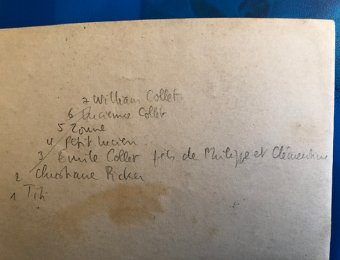 7 William Collet
6 Lucienne Collet
5 Zoune
4 petit Lucien
3 Emile Collet fils de Philippe et Clémentine
2 Christiane Ricker
1 Titi